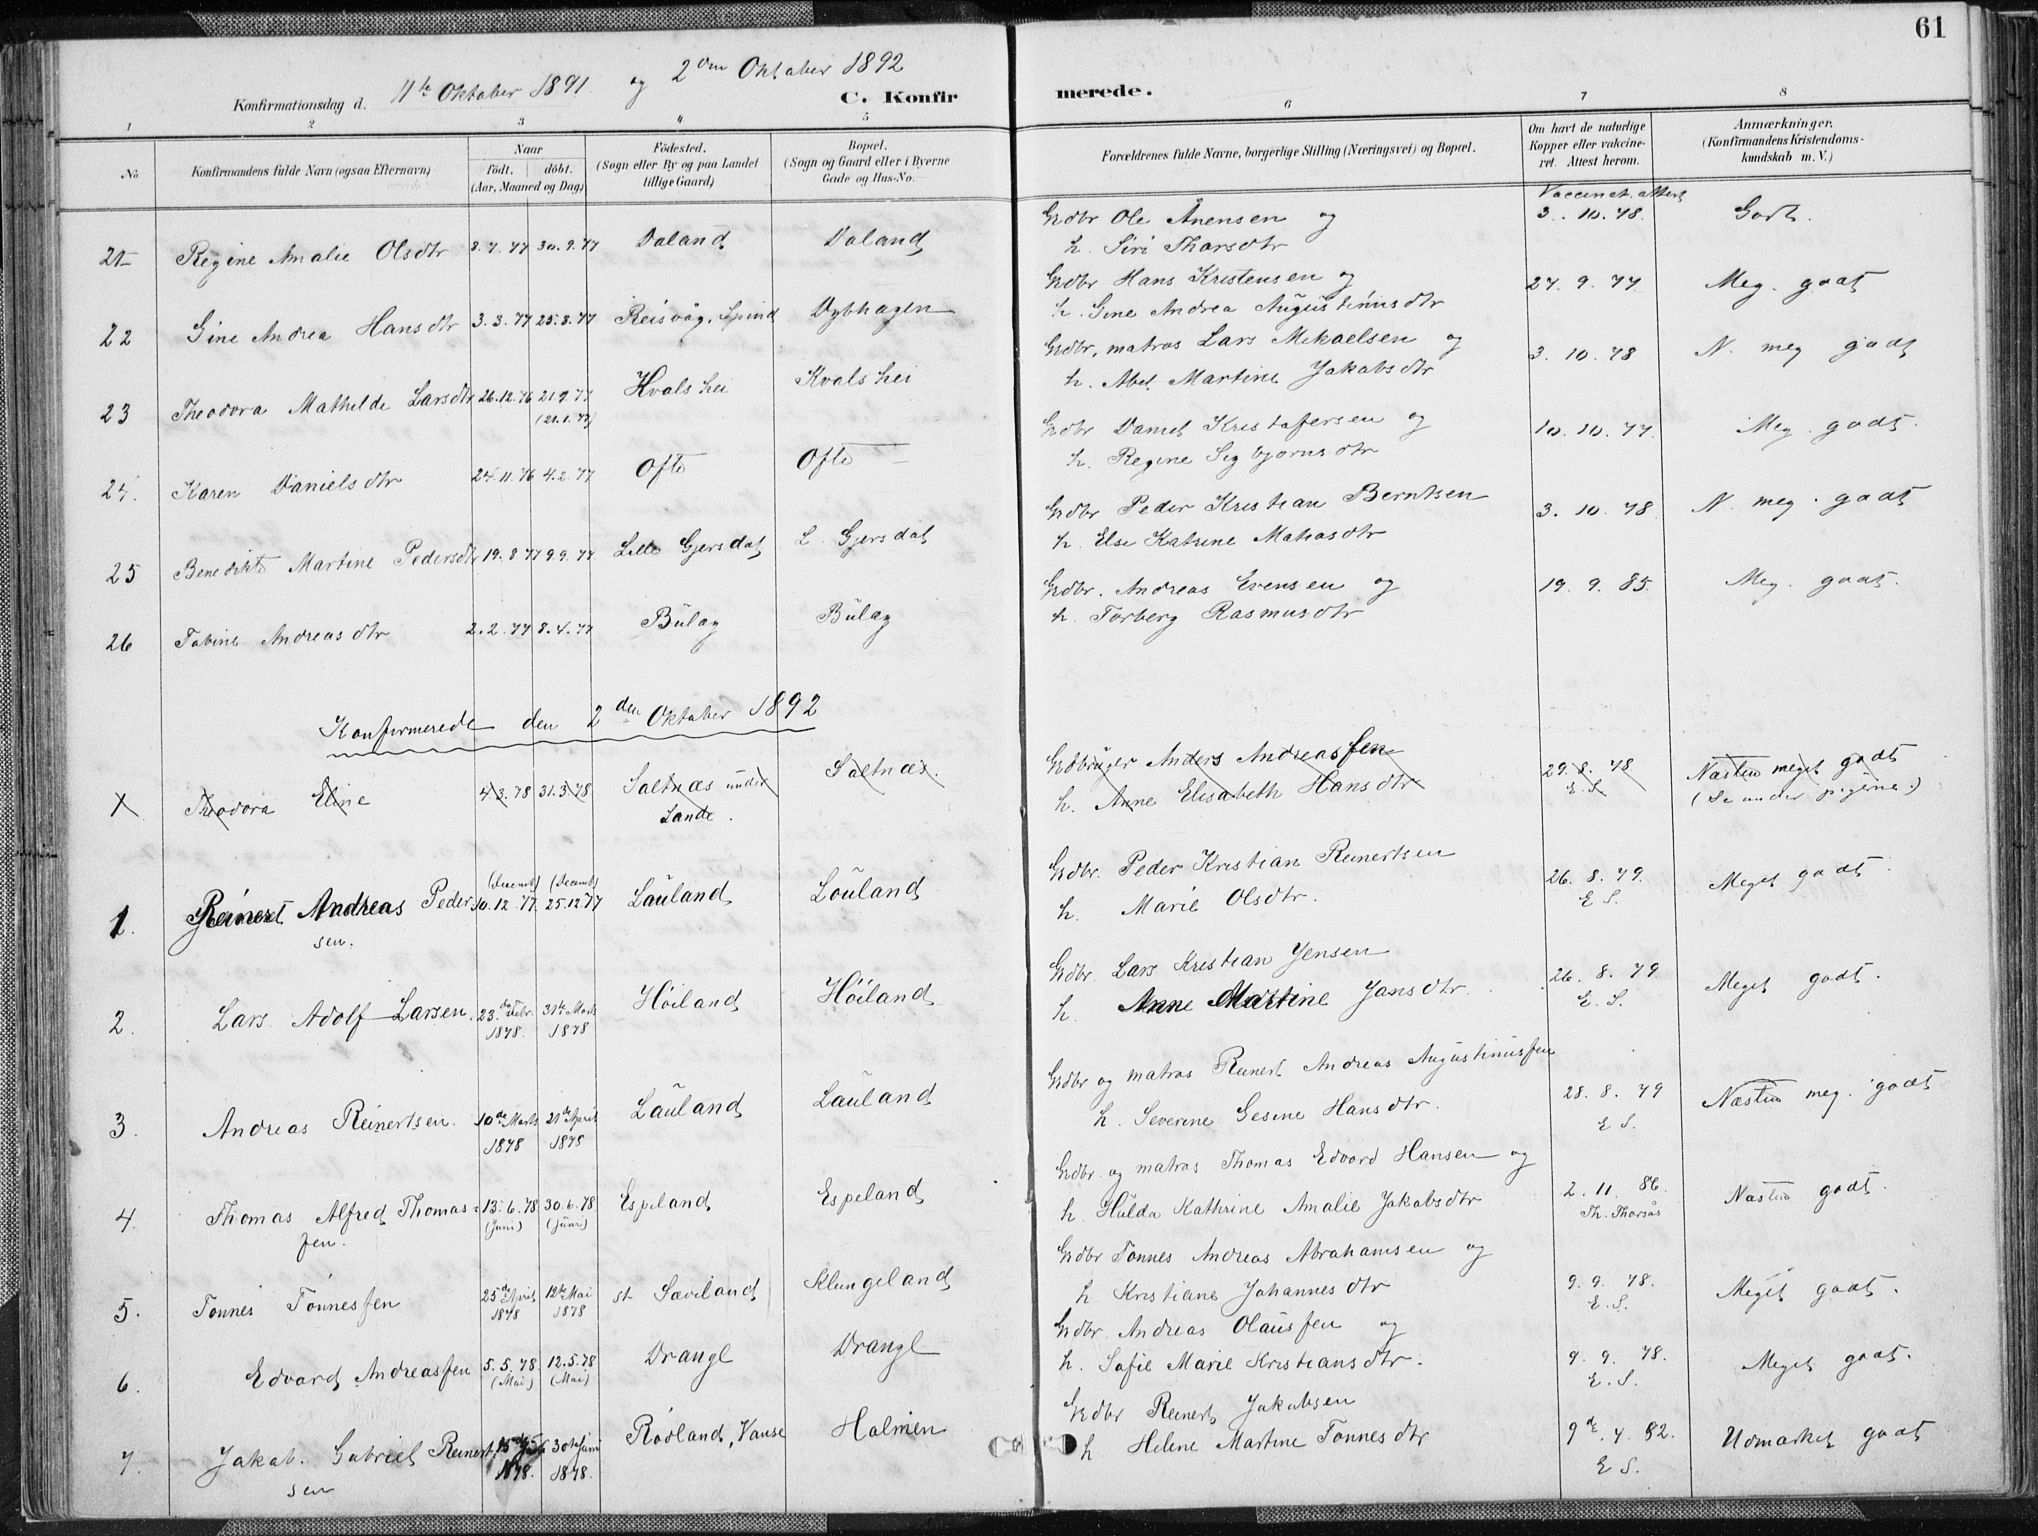 61
Konfirmationsdag d. 11te Oktober 1891 og 2den Oktober 1892
C. Konfirmerede.
1 2 3 4 5 6 7 8
No
Konfirmandens fulde Navn (ogsaa Efternavn)
Naar
født. døbt.
(Aar, Maaned og Dag)
Fødested.
(Sogn eller By og paa Landet
tillige Gaard)
Bopæl.
(Sogn og Gaard eller i Byerne
Gade og Hus-No.
Forældrenes fulde Navne, borgerlige Stilling (Næringsvei) og Bopæl.
Om havt de naturlige
Kopper eller vakcine-
ret. Attest herom.
Anmærkninger.
(Konfirmandens Kristendoms-
kundskab m. V.)
Vaccinat. attest
21 Regine Amalie Olsdtr 8.7.77 30.9.77 Daland Daland Gdbr Ole Ånensen og 3. 10. 78. Godt.
h. Siri Thorsdtr
22 Gine Andrea Hansdtr 3.3.77 25.3.77 Reisvåg, Spind Dybhagen Gdbr Hans Kristensen og 27. 9. 77 Meg. godt
h. Gine Andrea Augustinusdtr
23 Theodora Mathilde Larsdtr 26.12.76 21.9.77 Hvalshei Kvalshei Gdbr, matros Lars Mikaelsen og 3. 10. 78 N. meg godt
(21.1.77)
h. Abel Martine Jakobsdtr
24. Karen Danielsdtr 24.11.76 4.2.77 Ofte Ofte Gdbr Daniel Kristofersen og 10. 10. 77. Meg. godt.
h. Regine Sigbjørnsdtr
25 Benedikte Martine Pedersdtr 19.8 77 9.9.77 Lille Gjersdal L. Gjersdal Gdbr Peder Kristian Berntsen 3. 10. 78 N. meg. godt
h. Else Katrine Matiasdtr
26 Tobine Andreasdtr 2.2.77 8.4.77 Büleg Büleg Gdbr. Andreas Evensen og 19. 9. 85. Meg. godt.
h. Torberg Rasmusdtr
Konfirmerede den 2den Oktober 1892
Theodora Eline 4.3.78 31.3.78 Saltnæs under Saltnæs. Gdbrüger Anders Andreassen 29. 8. 78 Næsten meget godt
Lande. h. Anne Elisabeth Hansdtr E. S. (Se under pigerne.)
(Decemb) (Decemb)
1. Reinert Andreas Peder- 10.12.77. 25.12.77 Lauland Louland Gdbr. Peder Kristian Reinertsen 26. 8. 79. Meget godt.
sen. h. Marie Olsdtr. E S.
2. Lars Adolf Larsen. 23.de Febr. 31te Marts Høiland Høiland Gdbr. Lars Kristian Jensen 26. 8. 79 Meget godt.
1878. 1878 h. Anne Martine Jansdtr. E. S.
3. Andreas Reinertsen. 10de Marts 21de April Lauland Lauland Gdbr og matros Reinert Andreas Augustinussen 28. 8. 79 Næsten meg. godt
1878 1878 h. Severine Gesine Hansdtr. E S.
4. Thomas Alfred Thomas- 13.6.78 30.6.78 Espeland Espeland Gdbr. og matros Thomas Edvard Hansen og 2. 11. 86. Næsten godt.
sen. (Juni) (Juni) h. Hulda Kathrine Amalie Jakobsdtr Th. Thorsøs
5. Tønnes Tønnessen 25de April 12te Mai st. Sæviland Klungeland Gdbr Tønnes Andreas Abrahamsen og 9. 9. 78. Meget godt.
1878 1878 h. Kristiane Johannesdtr E. S.
6. Edvard Andreassen 5.5.78 12.5.78 Drangl Drangl Gdbr. Andreas Olaussen og 9. 9. 78. Meget godt.
(Mai) (Mai) h. Sofie Marie Kristiansdtr. E. S.
7. Jakob Gabriel Reinert- 30te Juni Rødland, Vanse Holmen Gdbr Reinert Jakobsen 9de. 7. 82. Udmærket godt
sen 1878. 1878. h Helene Martine Tønnesdtr E S.